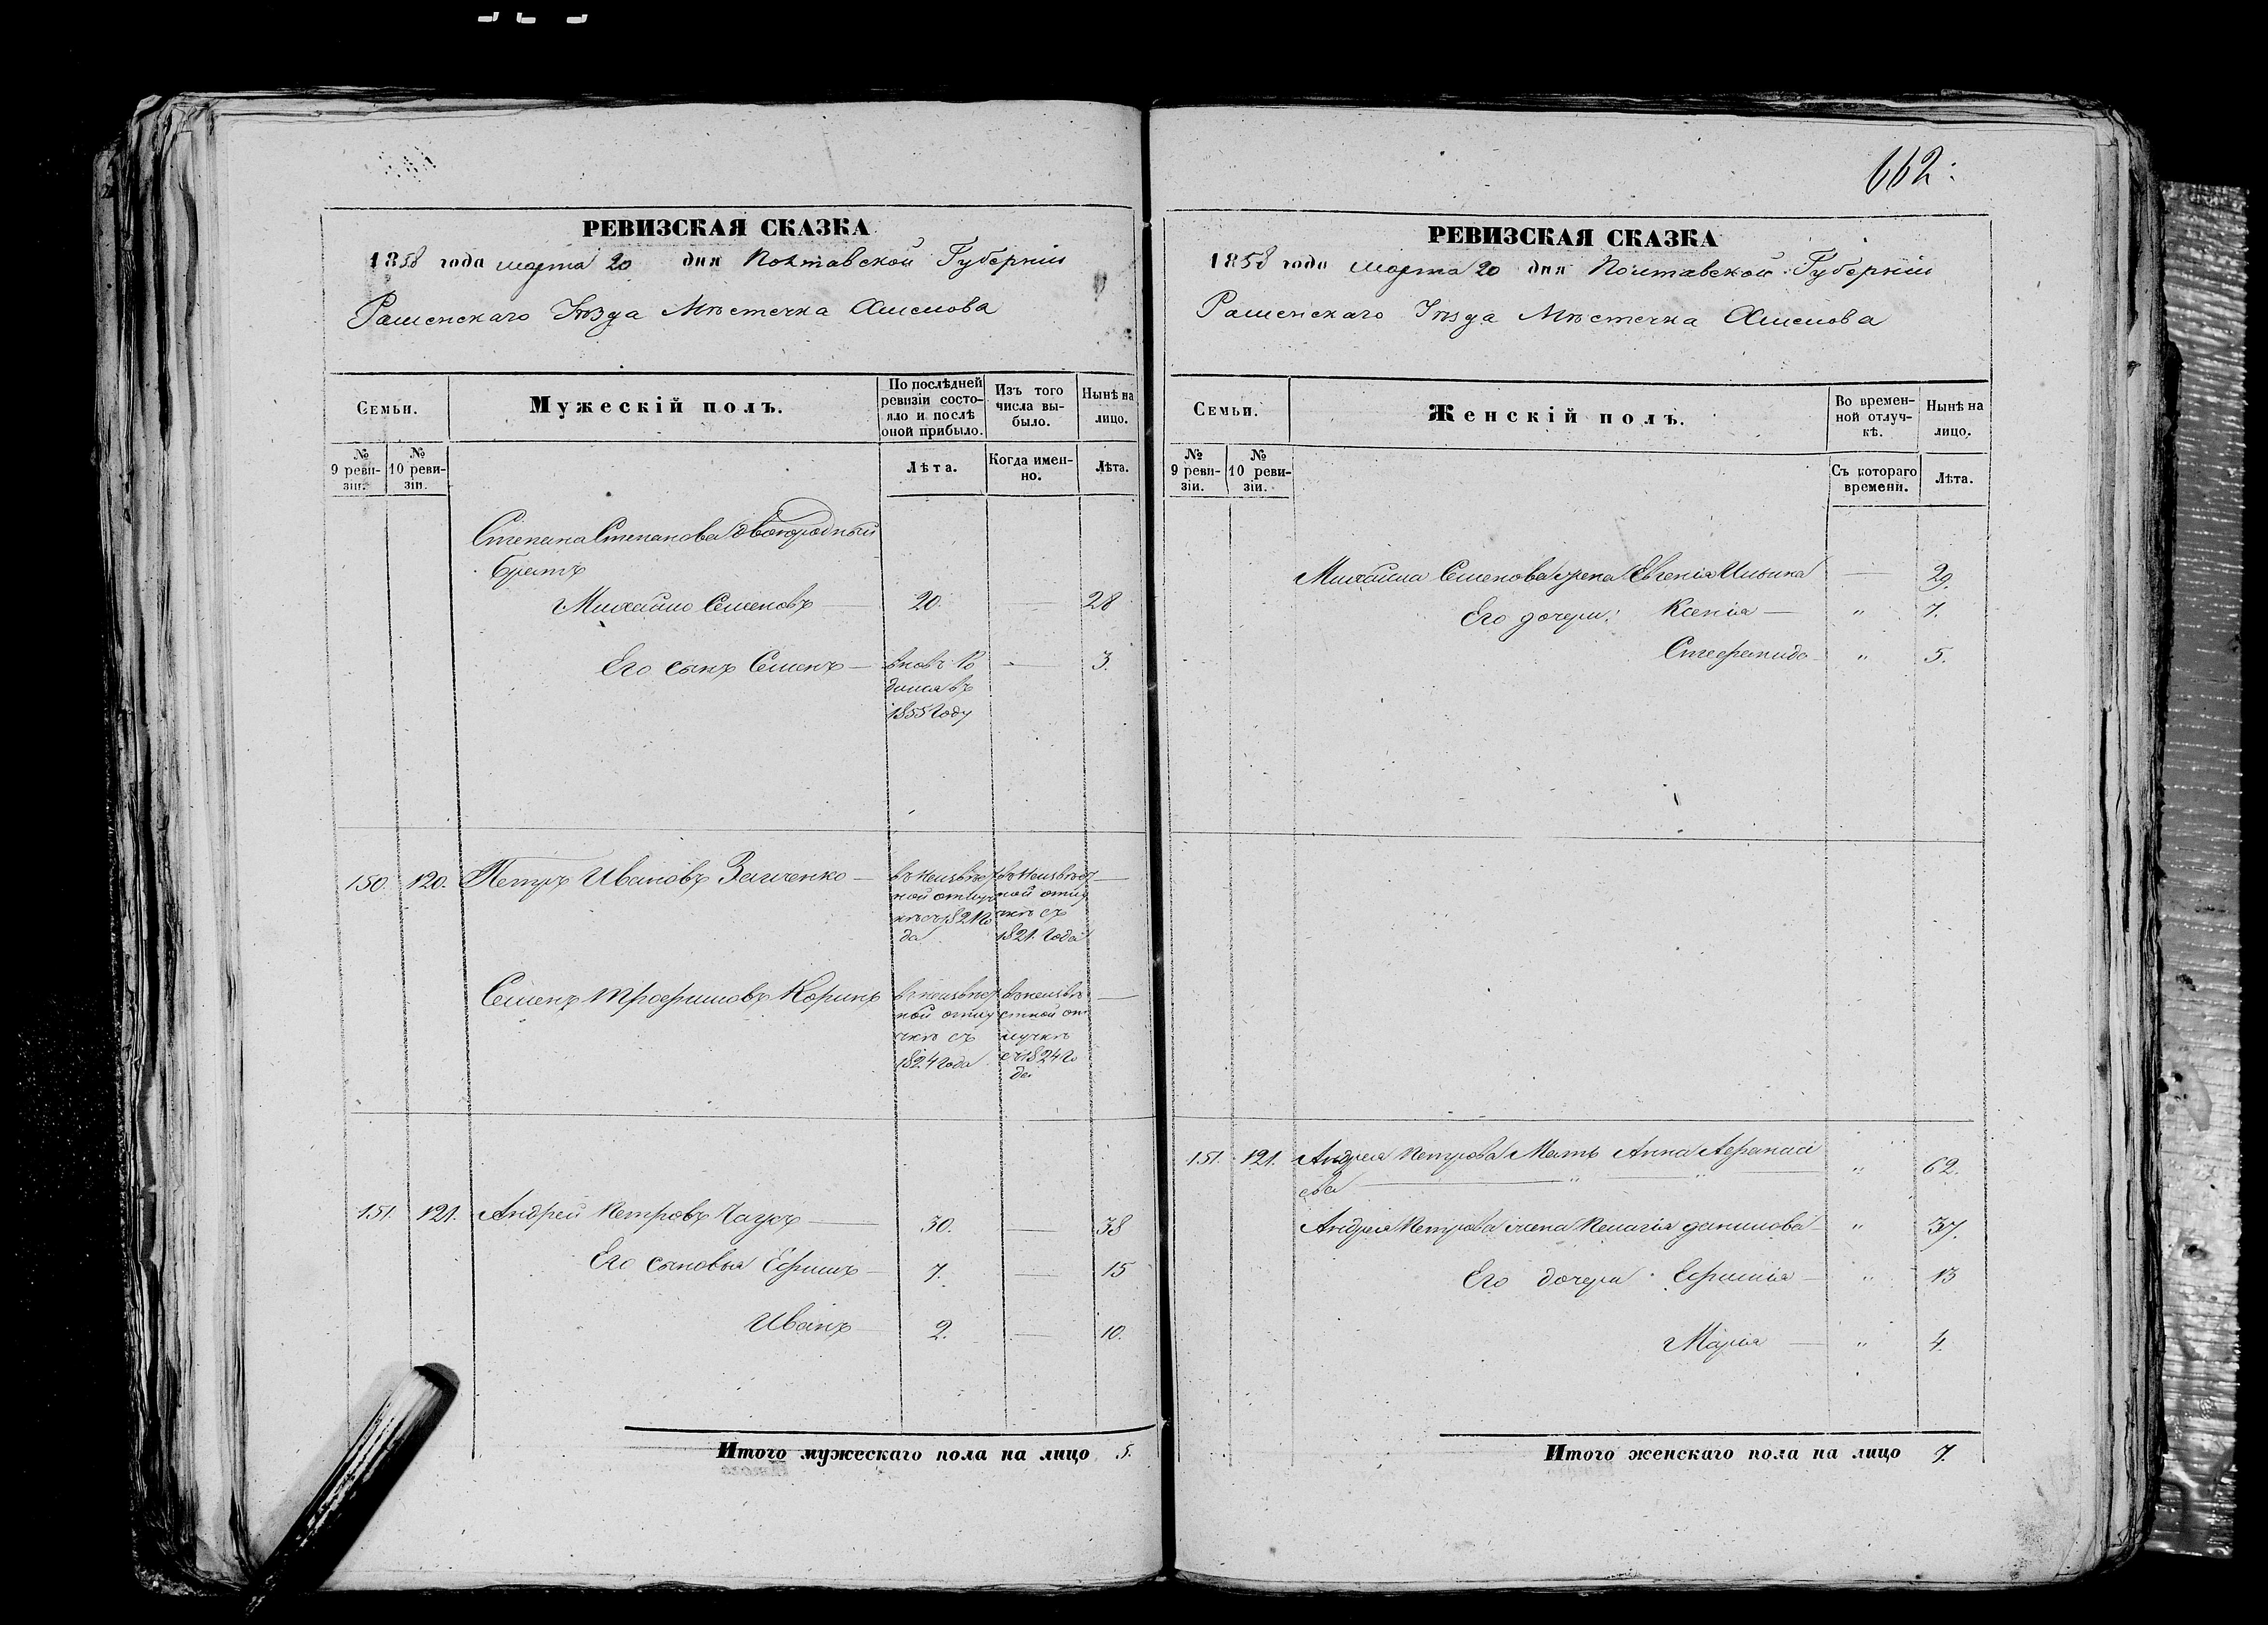 662.
РЕВИЗСКАЯ СКАЗКА
1858 года марта 20 дня Полтавской Губерніи
Роменскаго Уѣзда Мѣстечка Хмелова
Семьи.
Мужескій полъ.
По послѣдней ревизіи состояло и послѣ оной прибыло.
Изъ того числа выбыло.
Нынѣ на лицо.
№ 9 ревизіи.
№ 10 ревизіи.
Лѣта.
Когда именно.
Лѣта.
Степана Степанова двоюродный
братъ
Михайло Семеновъ 20. — 28
Его сынъ Семенъ — вновь ро — 3.
дился въ
1855 году
150. 120. Петръ Ивановъ —
въ неизвѣст
ной отлуч
кѣ съ 1821 го
да
въ неизвѣст
ной отлу
чкѣ съ
1821. года
Семенъ Трофимовъ Коринъ —
въ неизвѣст
ной отлу
чкѣ съ
1824 года
въ неизвѣ
стной от
лучкѣ
съ 1824 го
да
151. 121. Андрей Петровъ Чаусъ — 30. — 38
Его сыновья Ефимъ — 7. — 15
Иванъ — 2. — 10.
Итого мужескаго пола на лицо 5.
РЕВИЗСКАЯ СКАЗКА
1858 года марта 20 дня Полтавской Губерніи
Роменскаго Уѣзда Мѣстечка Хмелова
Семьи.
Женскій полъ.
Во временной отлучкѣ.
Нынѣ на лицо.
№ 9 ревизіи.
№ 10 ревизіи.
Съ котораго времени.
Лѣта.
Михайла Семенова жена Евгенія Ильина — 29.
Его дочери: Ксенія — " 7.
Стефанида — " 5.
151. 121. Андрея Петрова Мать Анна Афанасі
ева " 62.
Андрея Петрова жена Пелагія Данилова — " 37.
Его дочери Ефимія — " 13
Марія — " 4.
Итого женскаго пола на лицо 7.